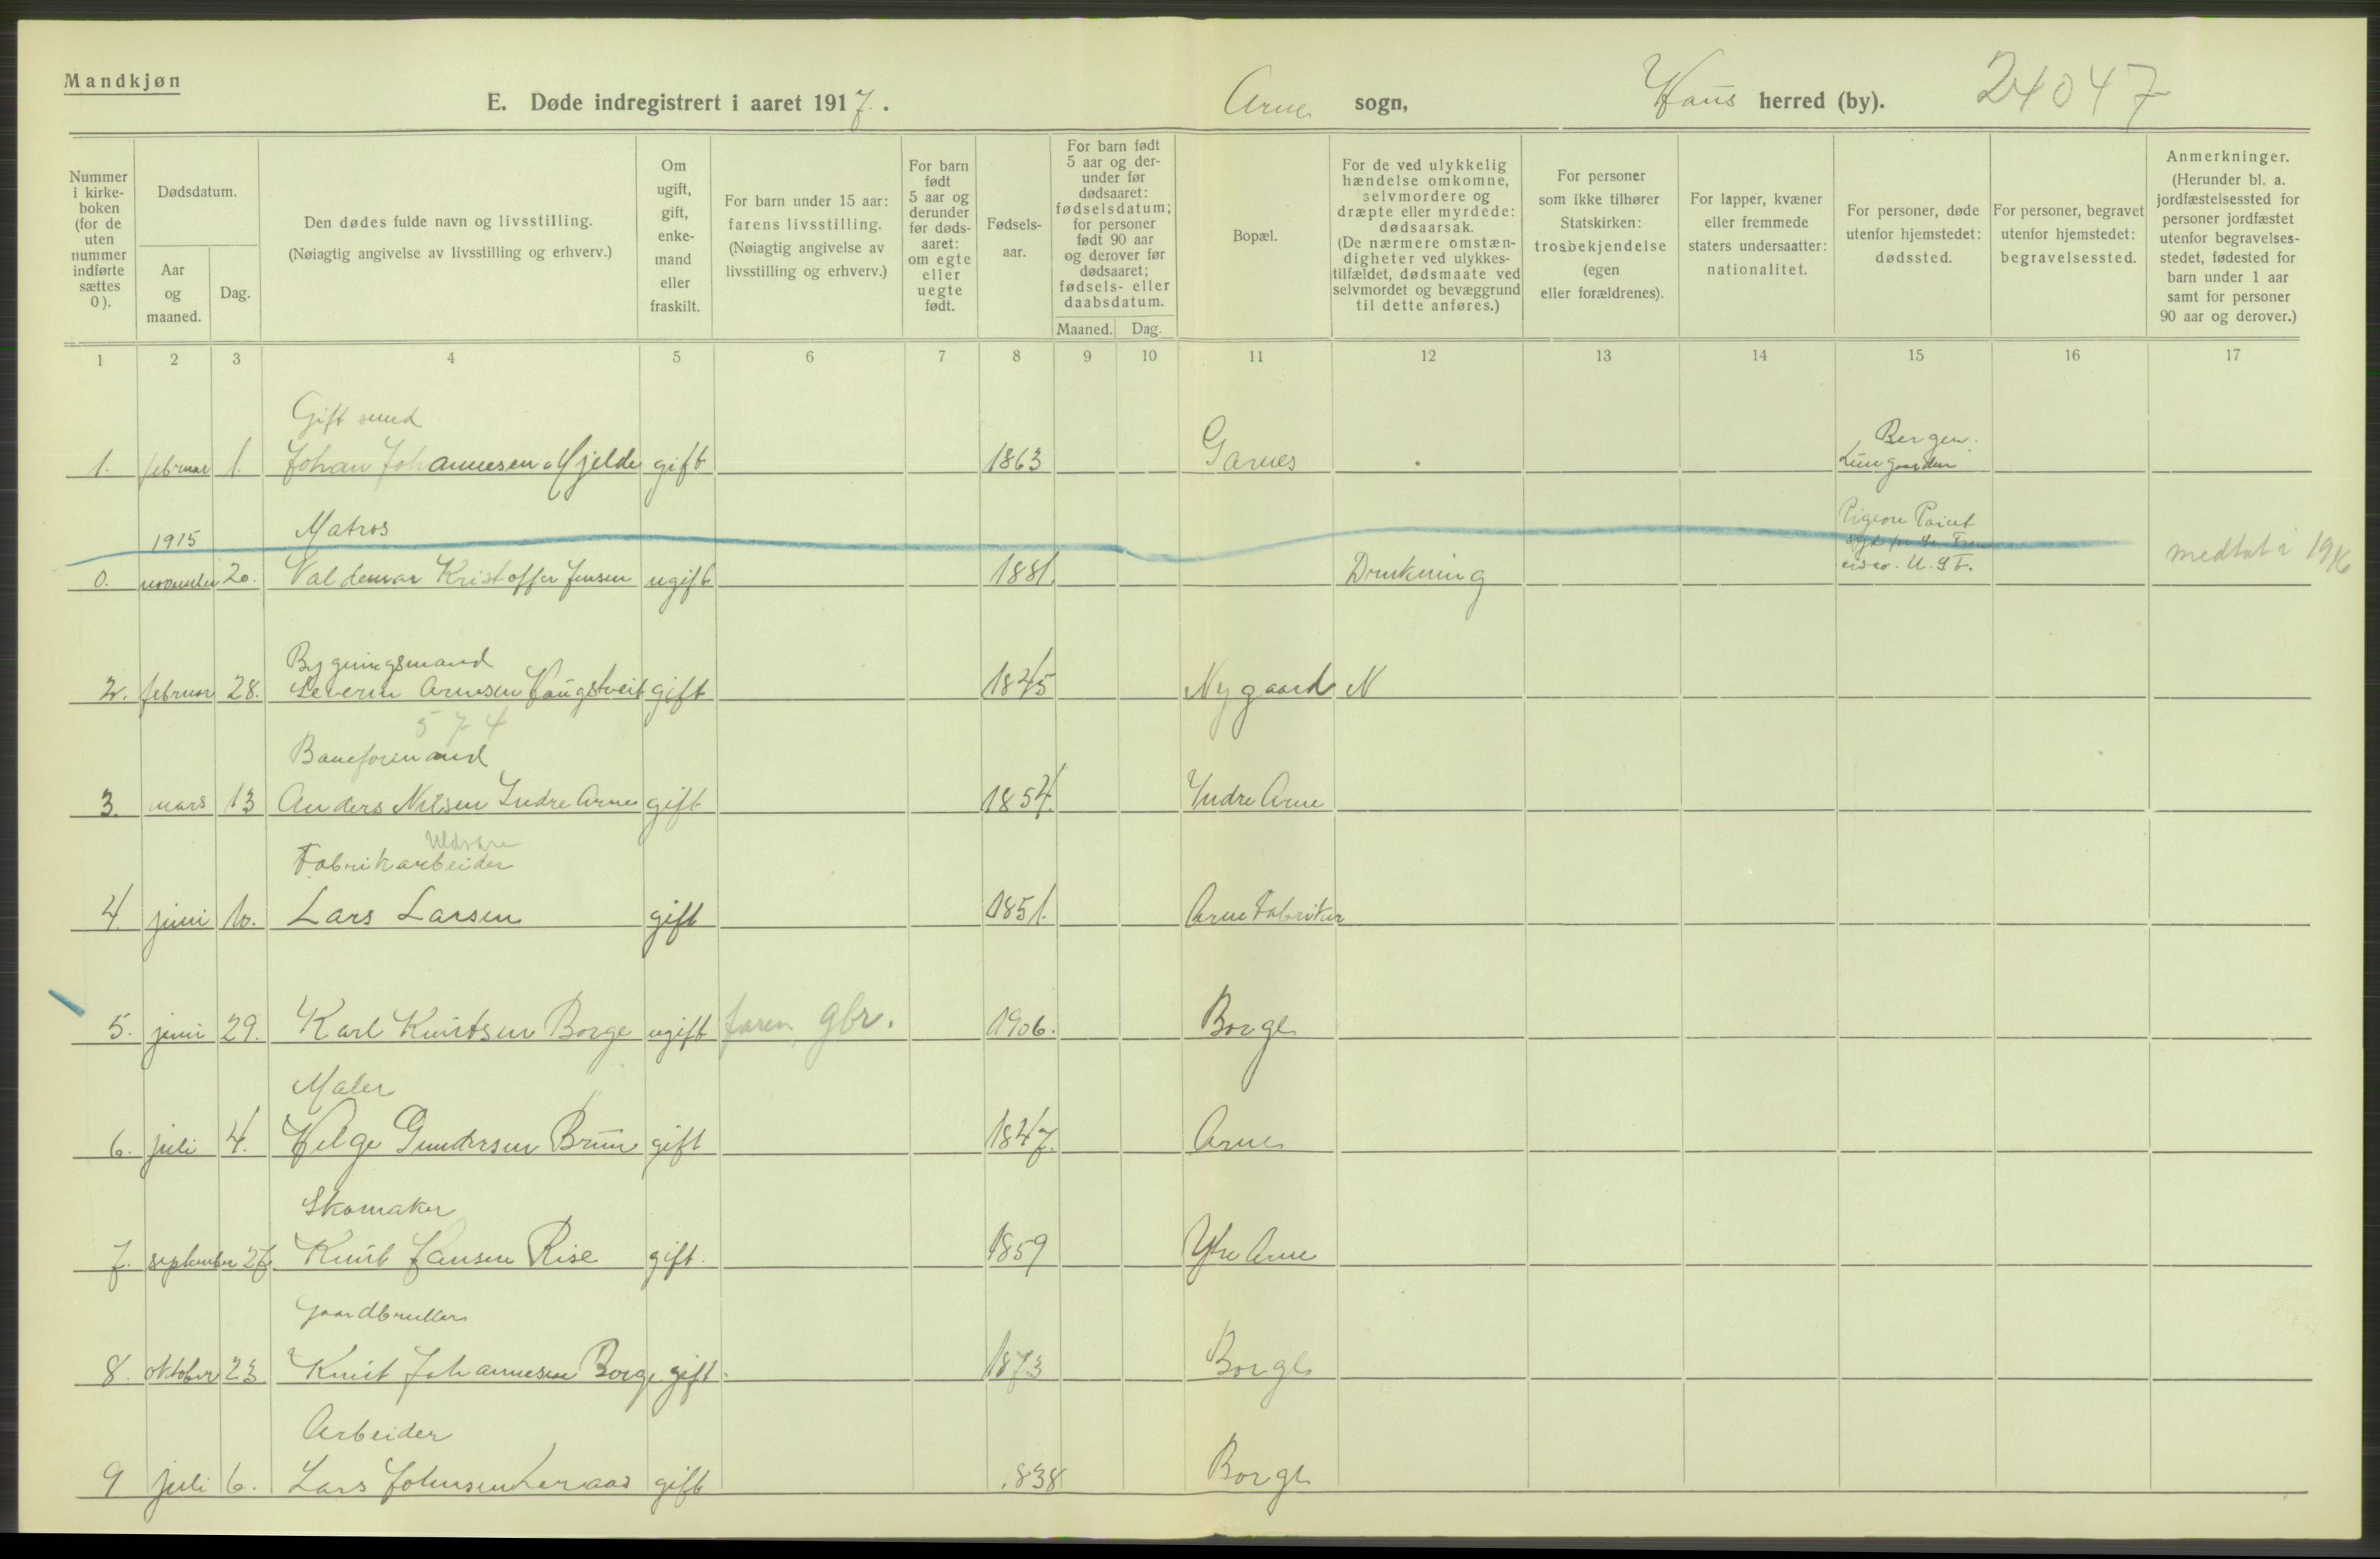 Mandkjøn
E. Døde indregistrert i aaret 1917. Arne sogn, Haus herred (by). 24047
Nummer i kirke- boken (for de uten nummer indførte sættes 0).
Dødsdatum.
Aar og maaned.
Dag.
Den dødes fulde navn og livsstilling.
(Nøiagtig angivelse av livsstilling og erhverv.)
Om ugift, gift, enke- mand eller fraskilt.
For barn under 15 aar: farens livsstilling. (Nøiagtig angivelse av livsstilling og erhverv.)
For barn født 5 aar og derunder før døds- aaret: om egte eller uegte født.
Fødsels- aar.
For barn født 5 aar og der- under før dødsaaret: fødselsdatum; for personer født 90 aar og derover før dødsaaret; fødsels- eller daabsdatum.
Maaned. Dag.
Bopæl.
For de ved ulykkelig hændelse omkomne, selvmordere og dræpte eller myrdede: dødsaarsak. (De nærmere omstæn- digheter ved ulykkes- tilfældet, dødsmaate ved selvmordet og bevæggrund til dette anføres.)
For personer som ikke tilhører Statskirken: trosbekjendelse (egen eller forældrenes).
For lapper, kvæner eller fremmede staters undersaatter: nationalitet.
For personer, døde utenfor hjemstedet: dødssted.
For personer, begravet utenfor hjemstedet: begravelsessted.
Anmerkninger. (Herunder bl. a. jordfæstelsessted for personer jordfæstet utenfor begravelses- stedet, fødested for barn under 1 aar samt for personer 90 aar og derover.)
1 2 3 4 5 6 7 8 9 10 11 12 13 14 15 16 17
Gift smed
Bergen.
1. februar 1. Johan Johannesen Mjelde gift 1863 Garnes Lungaarden
1915 Matros
Pigeon Point
0. november 20. Valdemar Kristoffer Jensen ugift 1881. Drukning
medtat i 1916
Bygningsmand
2. februar 28. Severin Arnesen Haugstveit gift 1845 Nygaard N
574
Baneformand
3. mars 13 Anders Nilsen Indre Arne gift 1854. Indre Arne
Uldvare
Fabrikarbeider
4. juni 10. Lars Larsen gift 1851. Arne Fabriker
5. juni 29. Karl Knutsen Borge ugift faren gbr. 1906. Borge
Maler
6. juli 4. Helge Gundersen Brun gift 1847. Arne
Skomaker
7. september 27. Knut Hansen Rise gift. 1859 Ytre Arne
Gaardbruker
8. oktober 23 Knut Johannesen Borge gift. 1873 Borge
Arbeider
9 juli 6. Lars Johnsen gift 1838 Borge